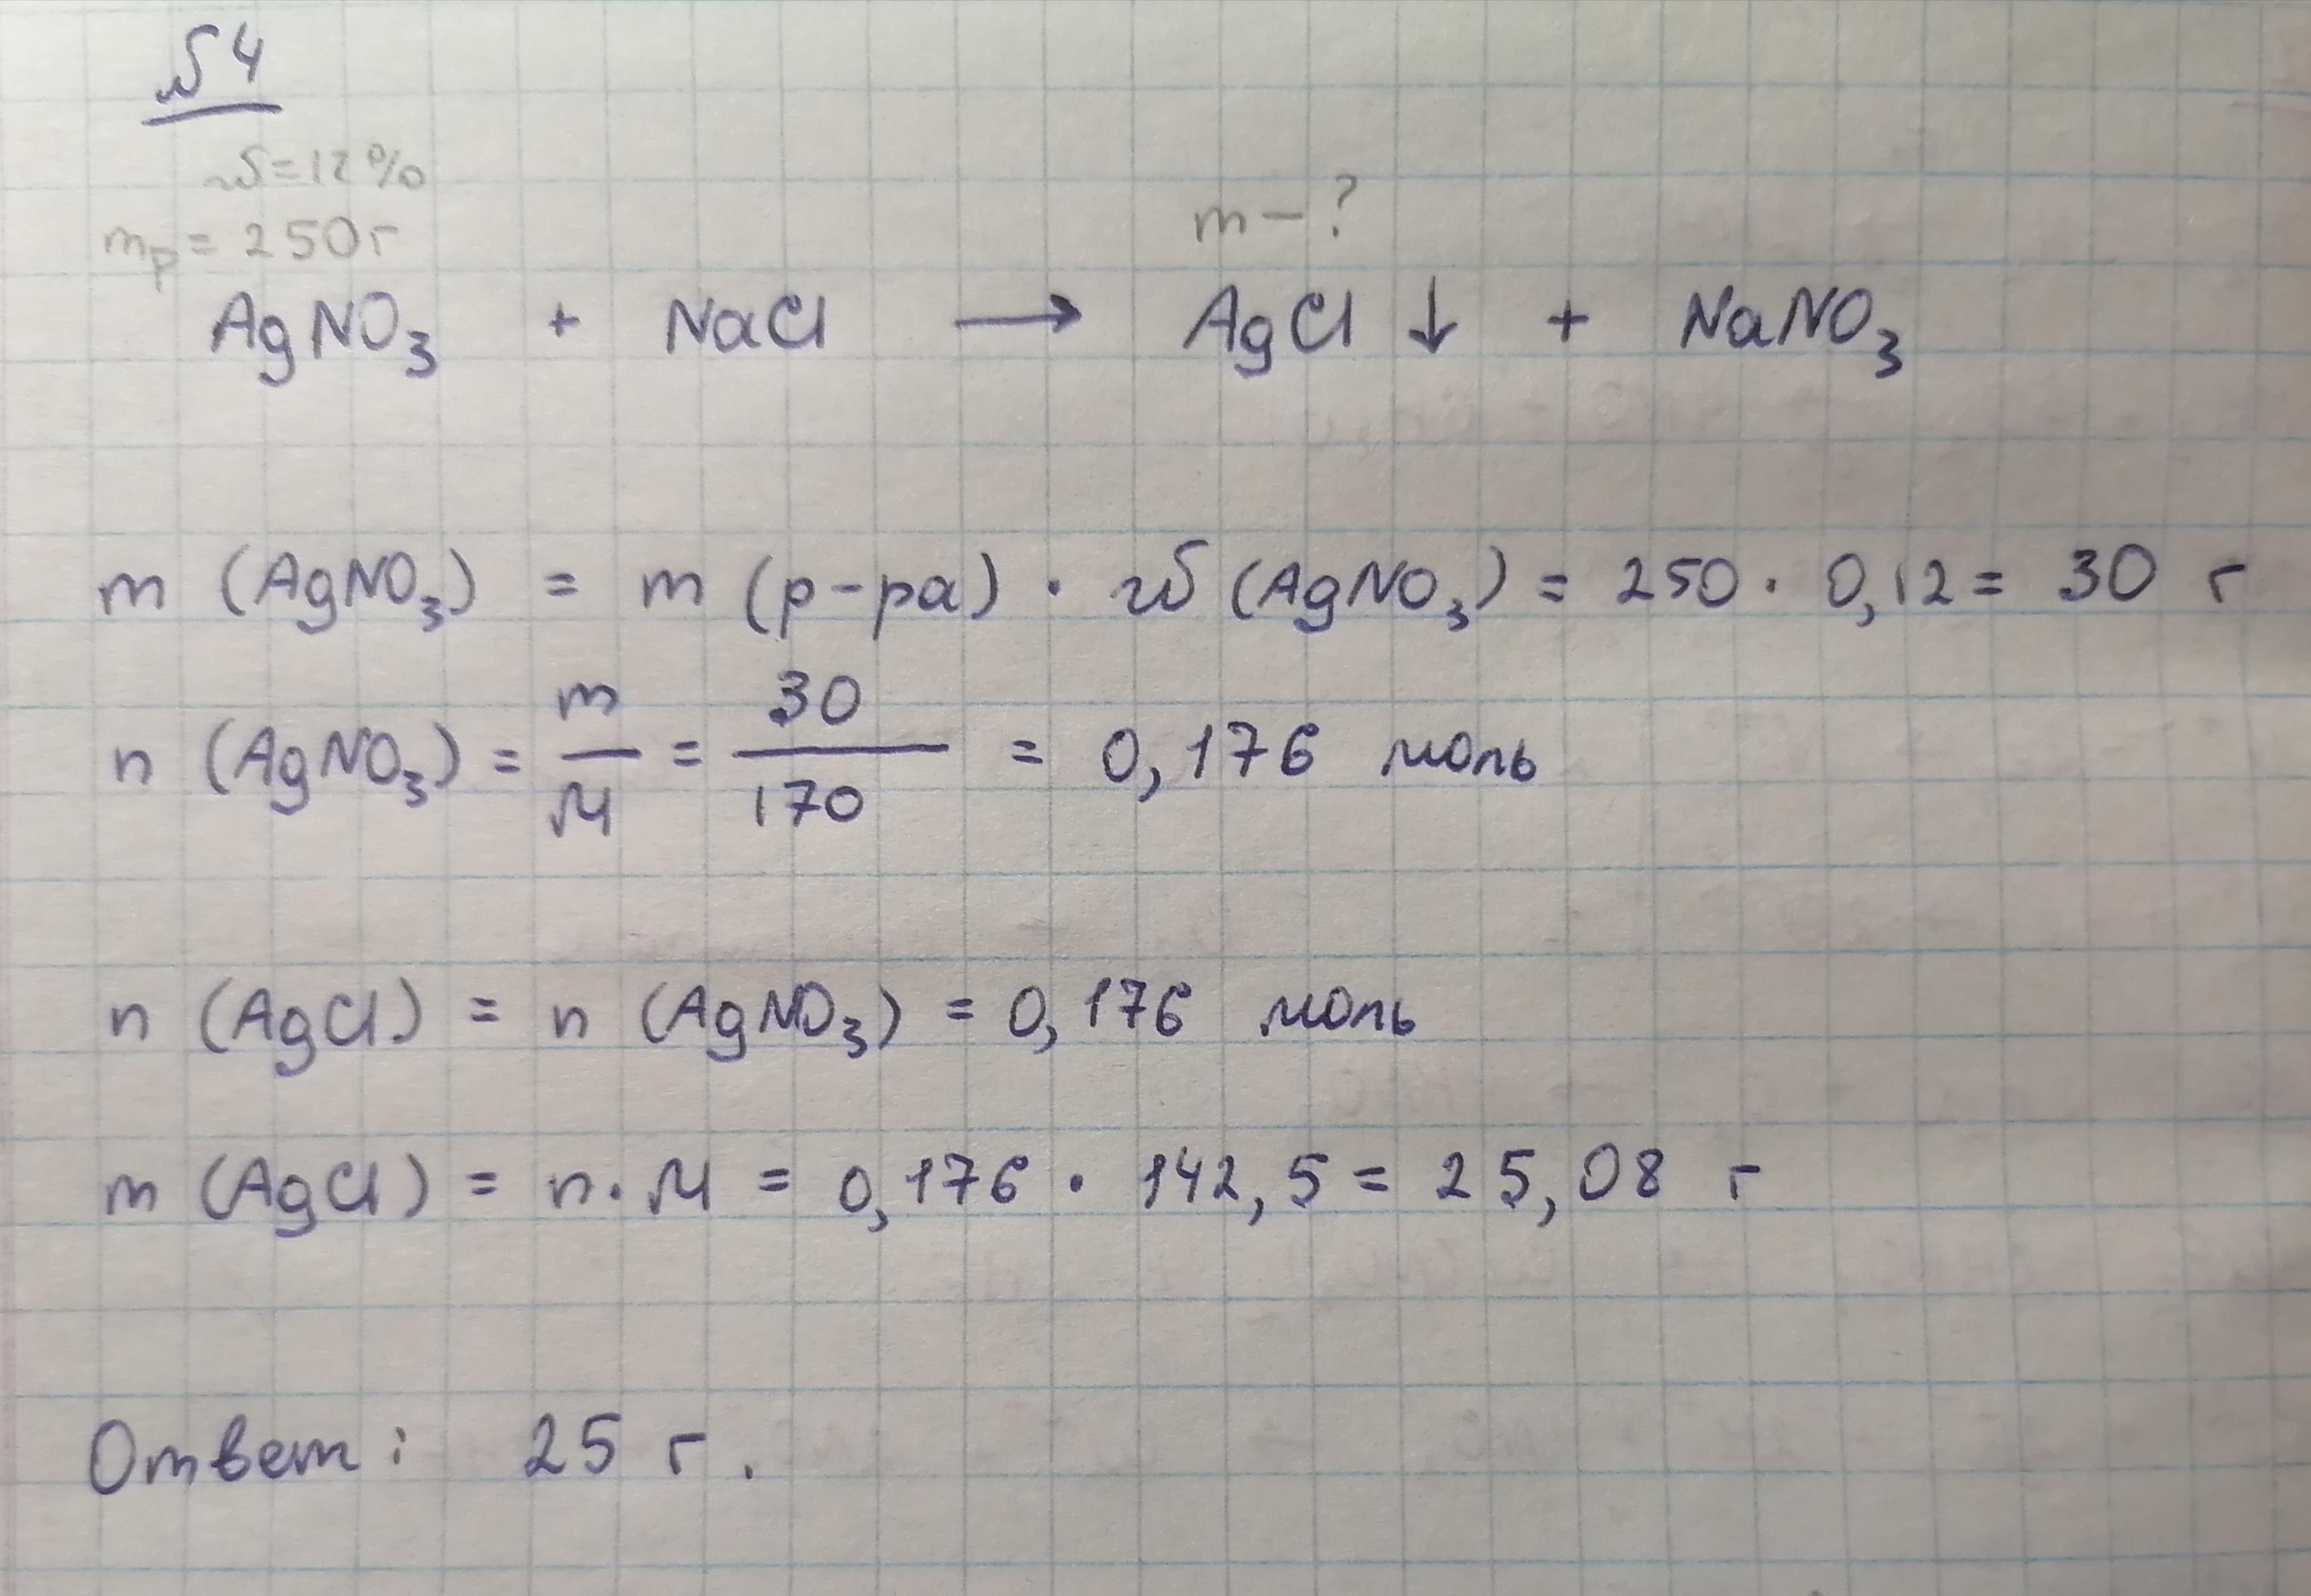 № 4
ω = 12%
mр = 250 г
m – ?
AgNO₃ + NaCl → AgCl ↓ + NaNO₃
m (AgNO₃) = m (р-ра) · ω (AgNO₃) = 250 · 0,12 = 30 г
n (AgNO₃) = m/M = 30/170 = 0,176 моль
n (AgCl) = n (AgNO₃) = 0,176 моль
m (AgCl) = n · M = 0,176 · 142,5 = 25,08 г
Ответ: 25 г.